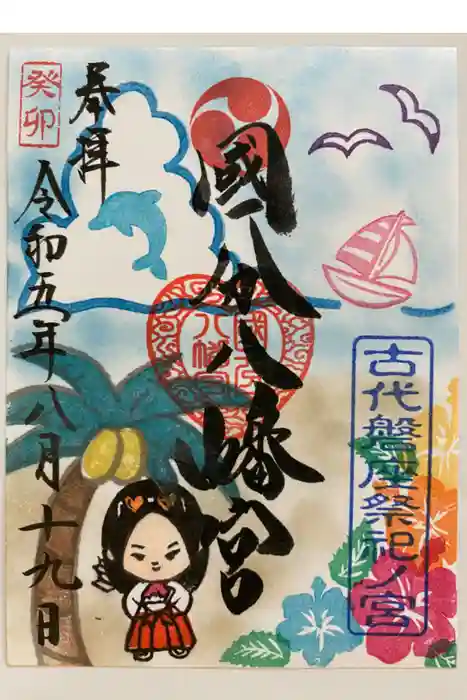 古代磐座祭祀ノ宮
國分八幡宮
奉拝
癸卯
令和五年八月十九日